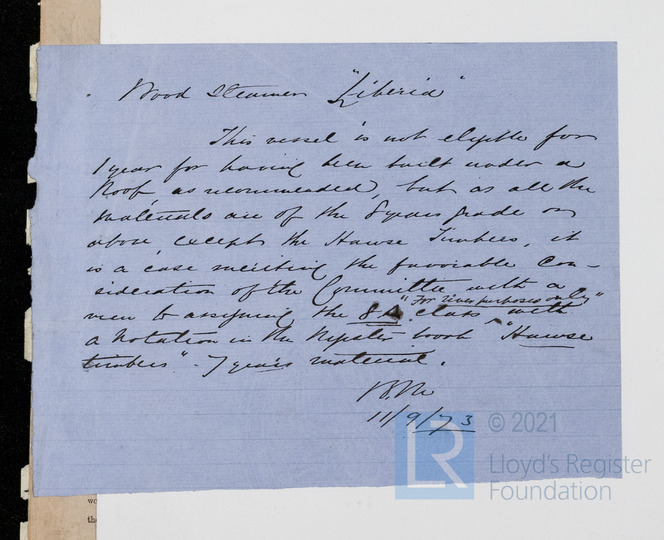 Wood Steamer "Liberia"
This vessel is not eligible for
1 year for having been built under a
Roof, as recommended, but as all the
materials are of the 8 years grade or
above, except the Hawse Timbers, it
is a case meriting the favorable Con-
sideration of the Committee with a
"For river purposes only"
view to assigning the 8 A class, with
a notation in the Register book "Hawse
timbers" - 7 years material.
11/9/73
LR © 2021
Lloyd's Register
Foundation
wo
the